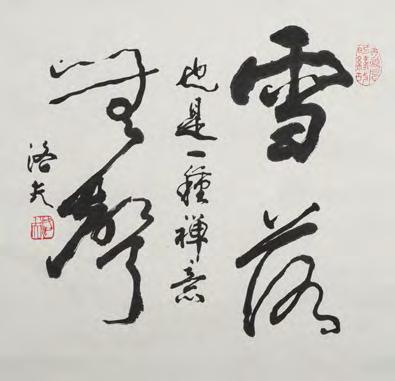 雪落
無聲
也是一種禪意
洛夫